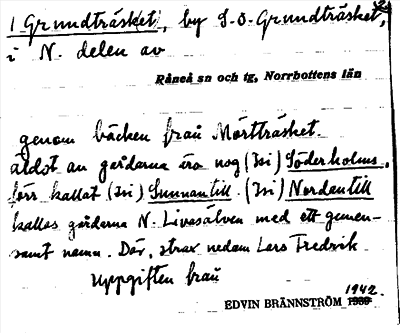 1 Grundträsket, by S.O. Grundträsket,
i N. delen av
Råneå sn och tg, Norrbottens län
genom bäcken från Mörtträsket.
äldst av gårdarna äro nog (Isi) Söderholms,
förr kallat (Isi) Sunnantill. (Isi) Nordantill
kallas gårdarna N. Livasälven med ett gemen-
samt namn. Där, strax nedom Lars Fredrik
Uppgiften från
1942
EDVIN BRÄNNSTRÖM 1939